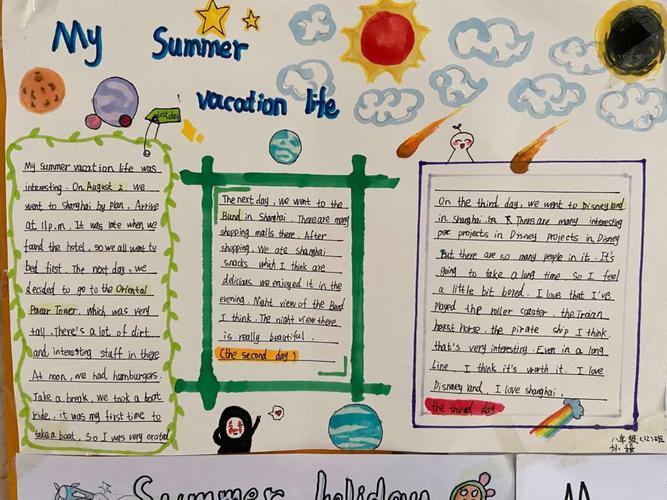 My Summer
vacation life
My summer vacation life was
interesting. On August 2. we
went to Shanghai by plan. Arrive
at 11p.m. It was late when we
found the hotel, so we all went to
bed first. The next day, we
decided to go to the Oriental
Pearer Tower, which was very
tall. There's a lot of dirt
and, interesting stuff in there
At noon, we had hamburgars.
Take a break, we took a boat
ride, it was my first time to
take a boat, So I was very exated
The next day, we went to the
Bund in Shanghai. There are many
shopping malls there. After
shopping. We ate shanghai
snacks which I think are
delicious, we enjoyed it in the
evening. Night view of the Bund
I think. The night view there
is really beautiful.
(the second day)
On the third day, we went to Disneyland
in Shanghai. There are many interesting
projects in Disney projects in Disney
But there are so many people in it. It's
going to take a long time, So I feel
a little bit bored. I love that I've
played the roller coaster, the Traian
horst horse, the pirate ship I think.
that's very interesting. Even in a long
Line, I think it's worth it. I love
Disneyland, I love shanghai.
the third day
八年级(12)班
Summer holiday
M